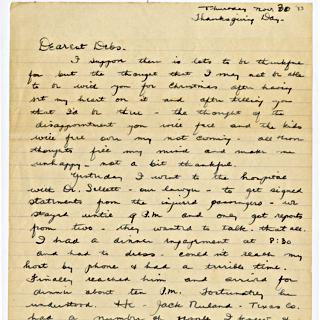 Thursday Nov 30 '33
Thanksgiving Day -
Dearest Debs.
I suppose there is lots to be thankful
for but the thought that I may not be able
to be with you for Christmas after having
set my heart on it and after telling you
that I'd be there - the thought of the
disappointment you will feel and the kids
will feel over my not coming - all those
thoughts fill my mind and make me
unhappy - not a bit thankful.
Yesterday I went to the hospital
with Dr. Sellett - our lawyer - to get signed
statements from the injured passengers - we
stayed until 9 P.M and only got reports
from two - they wanted to talk. that all.
I had a dinner engagement at 8:30
and had to dress - could not reach my
host by phone & had a terrible time.
Finally reached him and arrived for
dinner about ten P.M. Fortunately he
understood. He - Jack Ruland - Texas Co.
had a number of people